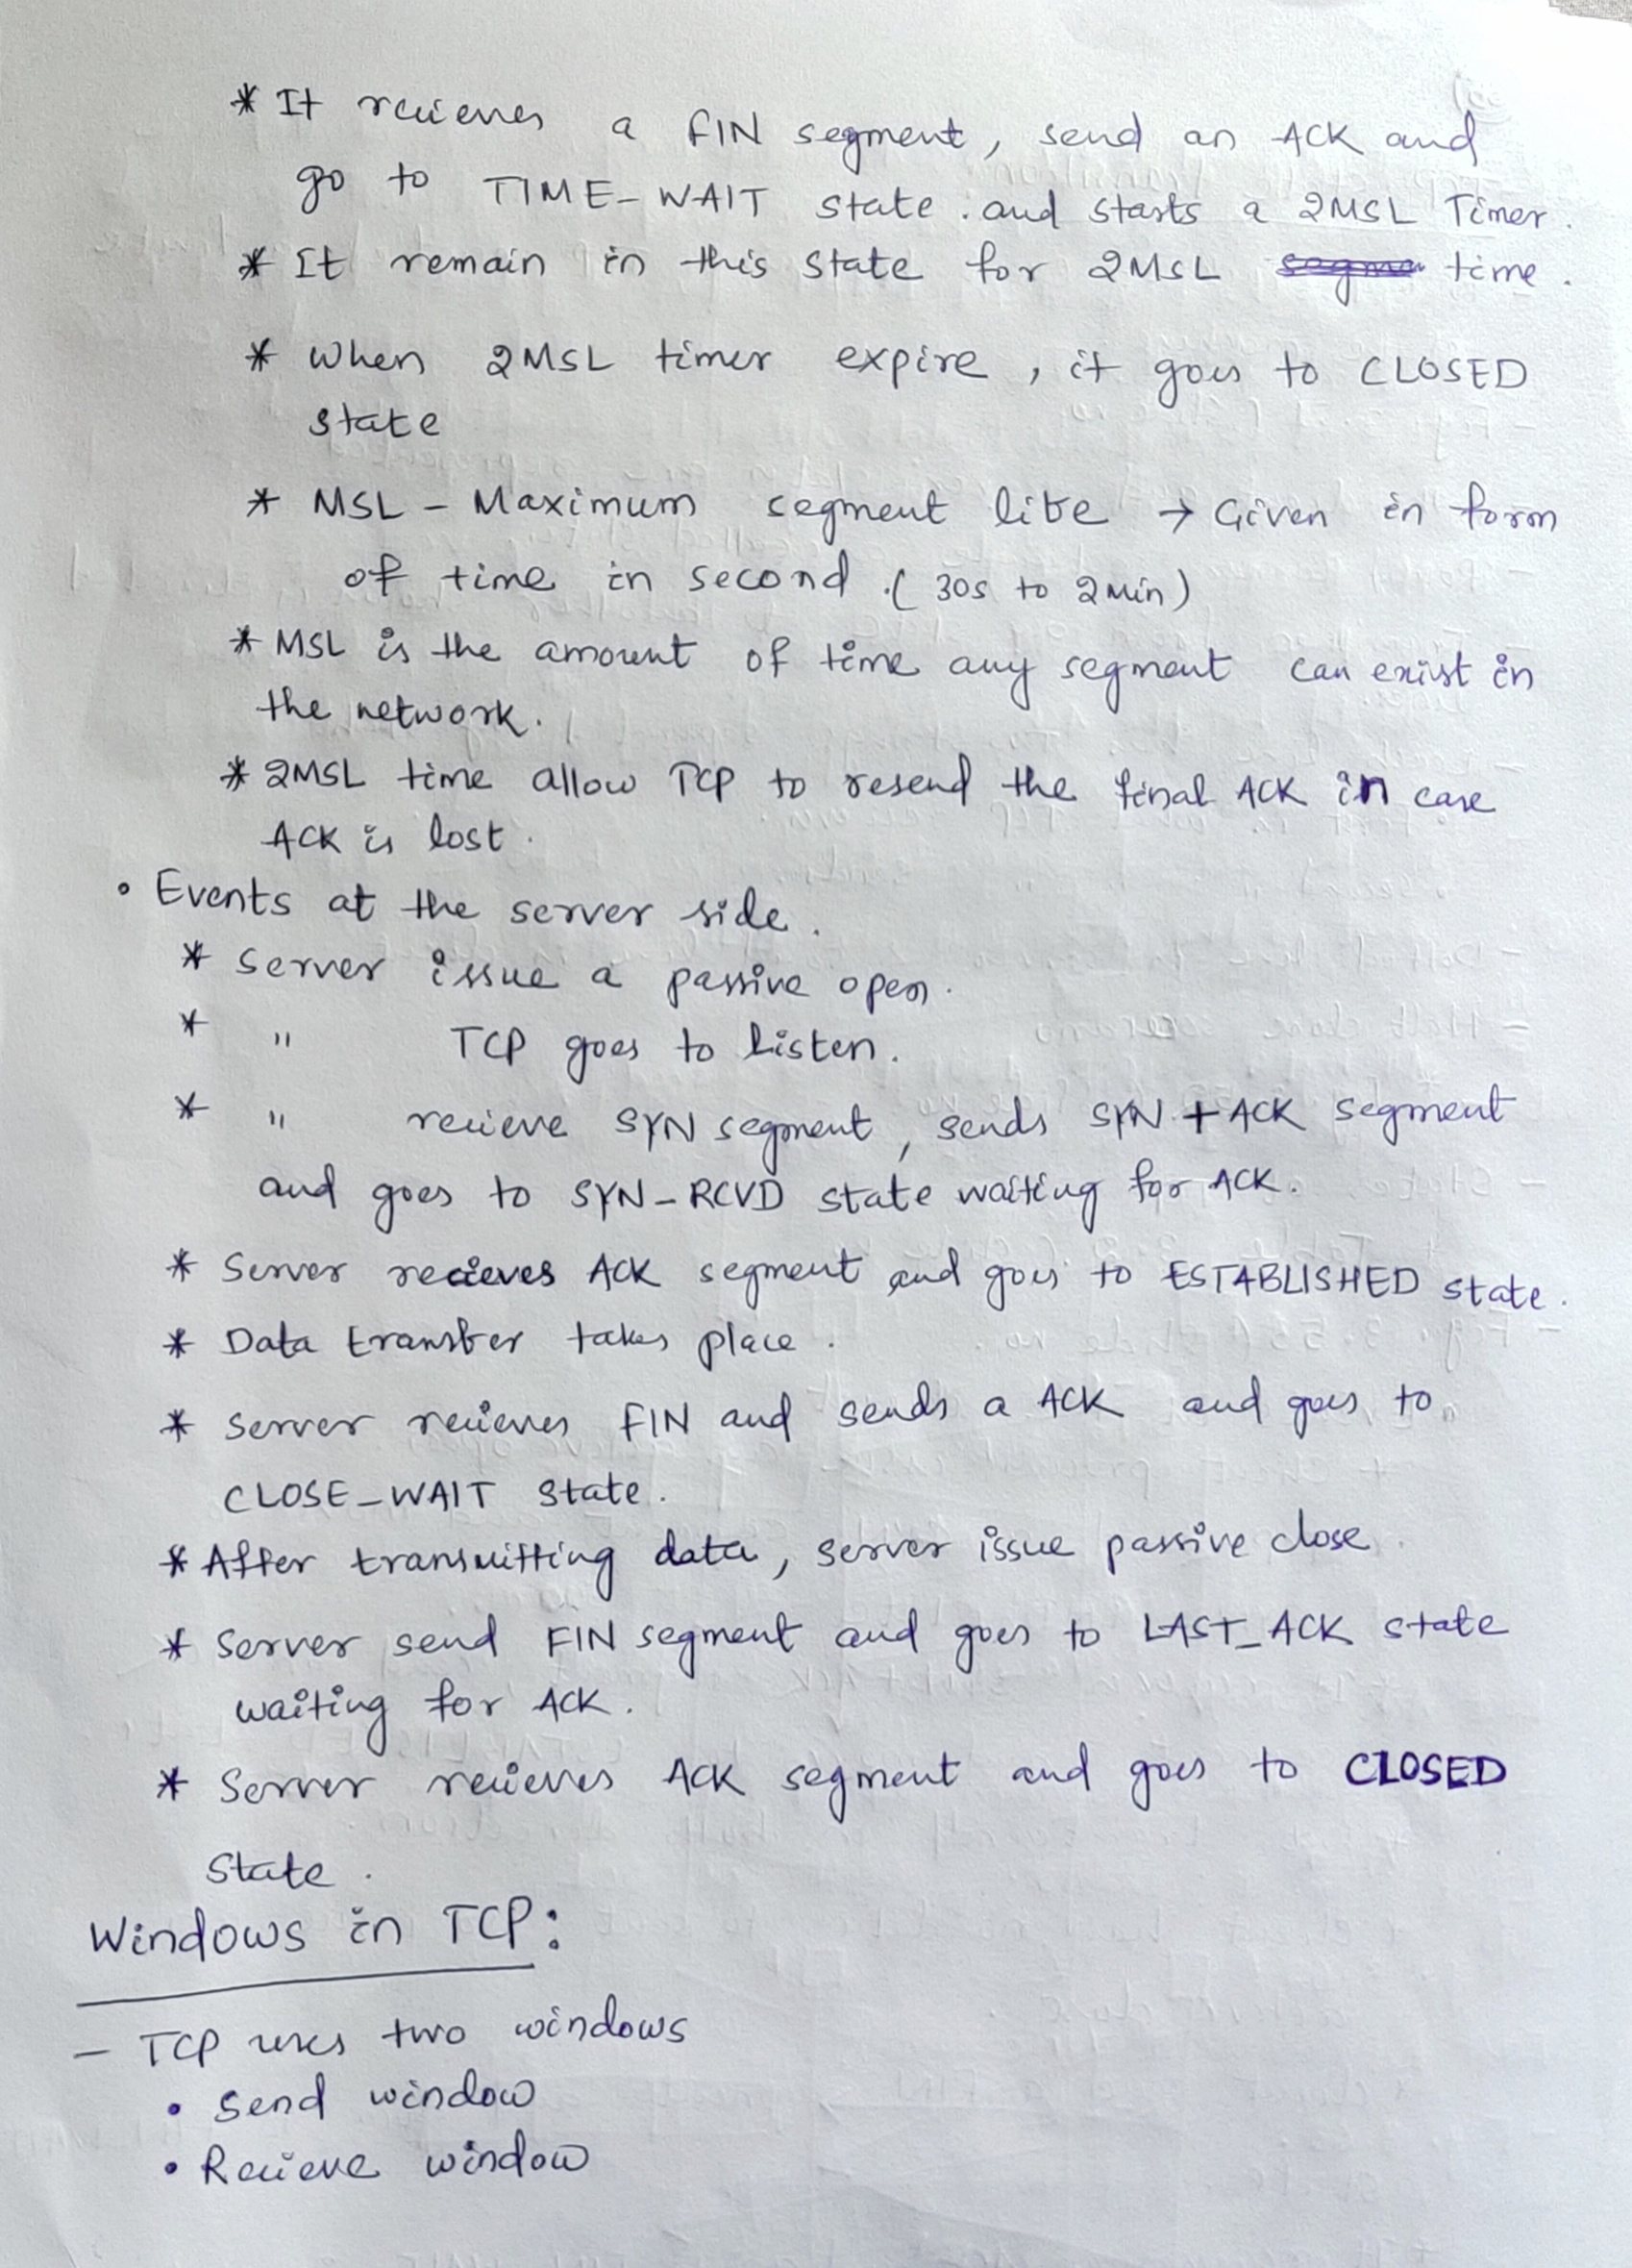 * It recieves a FIN segment, send an ACK and
go to TIME-WAIT state. and starts a 2MSL Timer.
* It remain in this state for 2MSL time.
* When 2MSL timer expire, it goes to CLOSED
state
* MSL - Maximum segment life → Given in form
of time in second. (30s to 2 Min)
* MSL is the amount of time any segment can exist in
the network.
* 2MSL time allow TCP to resend the final ACK in case
ACK is lost.
• Events at the server side.
* Server issue a passive open.
* " TCP goes to Listen.
* " recieve SYN segment, sends SYN + ACK segment
and goes to SYN-RCVD state waiting for ACK.
* Server recieves ACK segment and goes to ESTABLISHED state.
* Data transfer takes place.
* Server recieves FIN and sends a ACK and goes to
CLOSE-WAIT State.
* After transmitting data, server issue passive close.
* Server send FIN segment and goes to LAST_ACK state
waiting for ACK.
* Server recieves ACK segment and goes to CLOSED
State.
Windows in TCP:
- TCP uses two windows
• Send window
• Recieve window